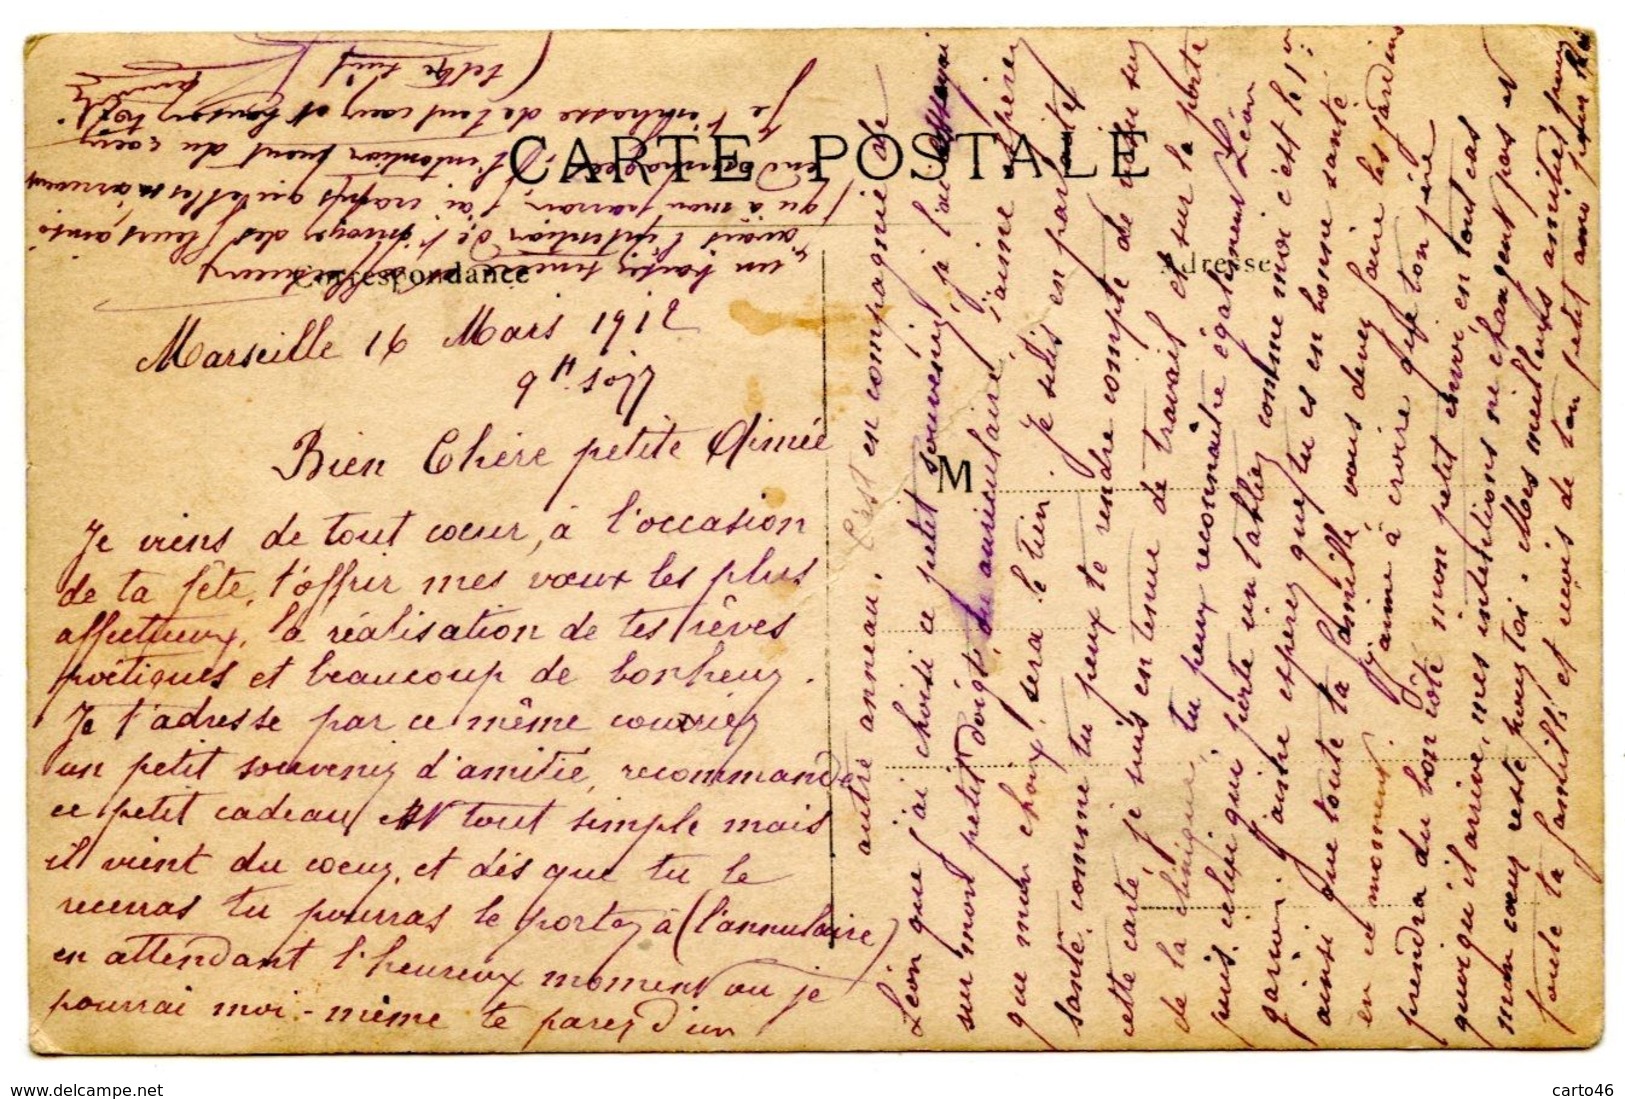 CARTE POSTALE
Correspondance
Adresse
M
Marseille 16 Mars 1912
9 H. soir
Bien Chère petite Aimée
Je viens de tout cœur, à l'occasion
de ta fête, t'offrir mes vœux les plus
affectueux, la réalisation de tes rêves
poétiques et beaucoup de bonheur.
Je t'adresse par ce même courrier
un petit souvenir d'amitié, recommandé
ce petit cadeau est tout simple mais
il vient du cœur, et dès que tu le
recevras tu pourras le porter à (l'annulaire)
en attendant l'heureux moment ou je
pourrai moi-même te parer d'un
autre anneau. C'est en compagnie de
Léon que j'ai choisi ce petit souvenir, je l'ai
sur mon petit doigt, du auriculaire, j'aime espérer
que mon choix, sera le tien. Je suis en parfaite
santé, comme tu peux te rendre compte de visu sur
cette carte, je suis en tenue de travail et sur la porte
de la clinique, tu peux reconnaître également Léon
puis, celui qui porte un tablier comme moi c'est le 1er
garçon. J'aime espérer que tu es en bonne santé
ainsi que toute ta famille, vous devez faire les jardins
en ce moment. J'aime à croire que ton père
prendra du bon côté mon petit envoi, en tout cas
quoi qu'il arrive, mes intentions ne changent pas et
mon cœur reste pour toi. Mes meilleurs amitiés pour
toute ta famille et reçois de ton petit ami pour la vie
un baiser sincère
avais l'intention de t'envoyer des fleurs ainsi
qu'à mon parrain, j'ai crains qu'elles n'arrivent
endommagées. L'intention vient du cœur
je t'embrasse de tout cœur et toujours à toi